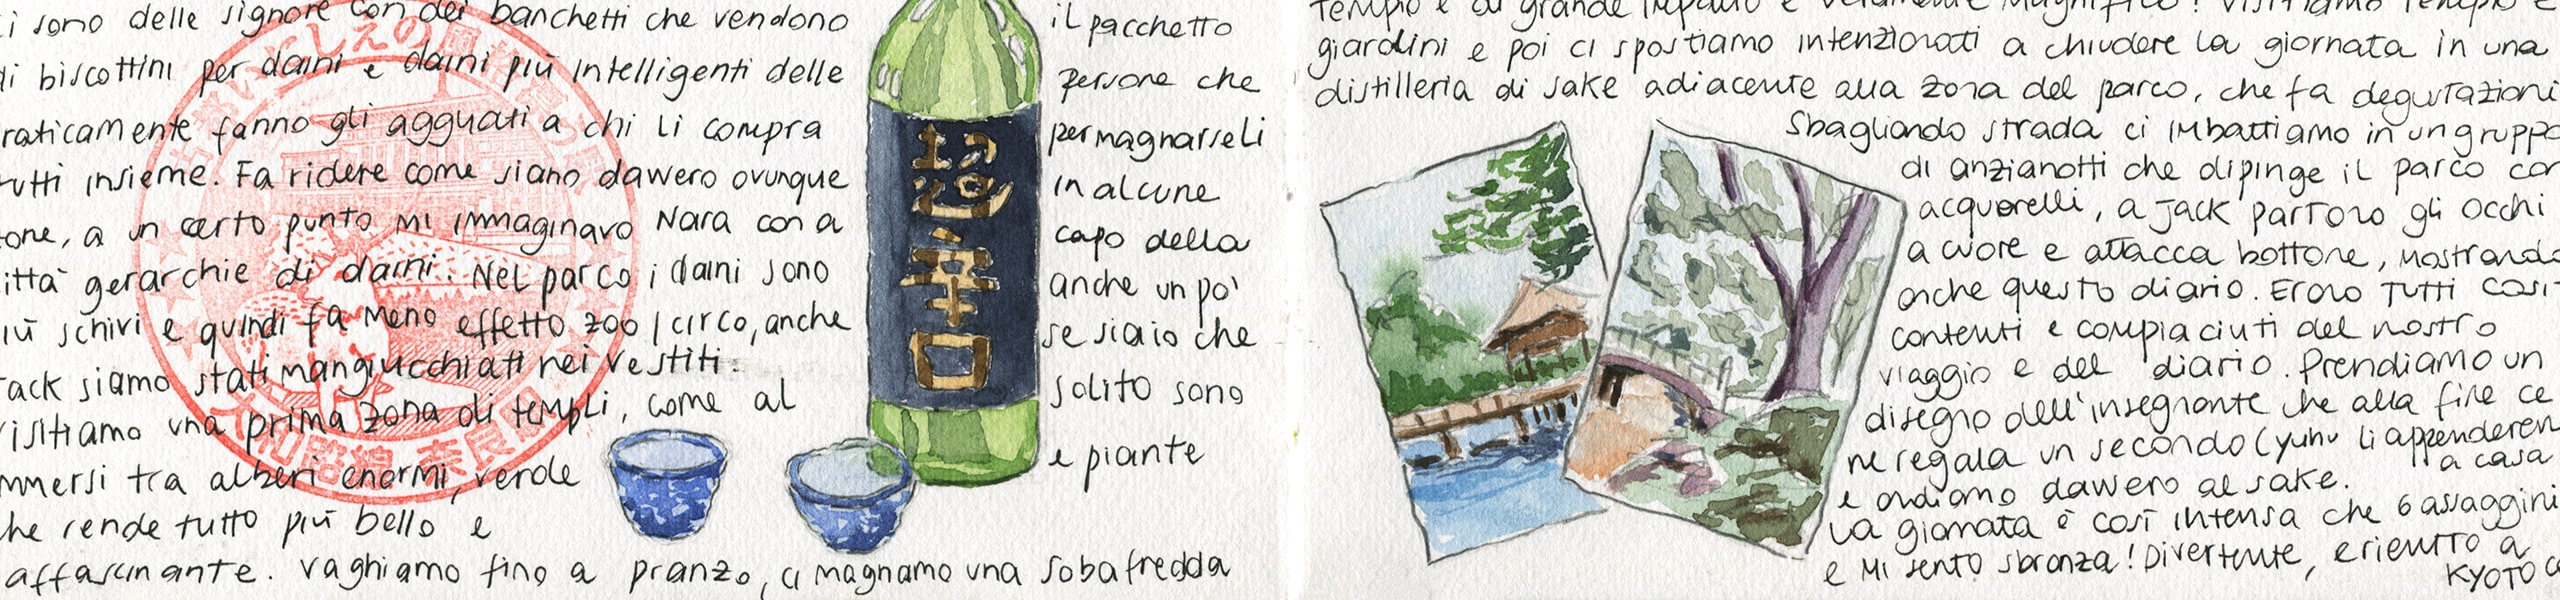 ci sono delle signore con dei banchetti che vendono
di biscottini per daini e daini più intelligenti delle
raticamente fanno gli agguati a chi li compra
tutti insieme. Fa ridere come siano davvero ovunque
one, a un certo punto mi immaginavo Nara con a
ittà gerarchie di daini. Nel parco i daini sono
iù schivi e quindi fa meno effetto zoo/circo, anche
Jack siamo stati mangiucchiati nei vestiti.
visitiamo una prima zona di templi, come al
mmersi tra alberi enormi, verde
he rende tutto più bello e
affascinante. Vaghiamo fino a pranzo, ci magnamo una soba fredda
il pacchetto
persone che
per magnarseli
in alcune
capo della
anche un po'
se sia io che
solito sono
e piante
超
辛
口
いにしえの
大和路線 奈良
tempio è di grande impatto e veramente magnifico! Visitiamo tempio e
giardini e poi ci spostiamo intenzionati a chiudere la giornata in una
distilleria di sake adiacente alla zona del parco, che fa degustazioni
Sbagliando strada ci imbattiamo in un gruppo
di anzianotti che dipinge il parco con
acquerelli, a Jack partono gli occhi
a cuore e attacca bottone, mostrando
anche questo diario. Erano tutti così
contenti e compiaciuti del nostro
viaggio e del diario. Prendiamo un
disegno dell'insegnante che alla fine ce
ne regala un secondo (yuhu li appenderem
a casa
e andiamo davvero al sake.
La giornata è così intensa che 6 assaggini
e mi sento sbronza! Divertente, e rientro a
KYOTO